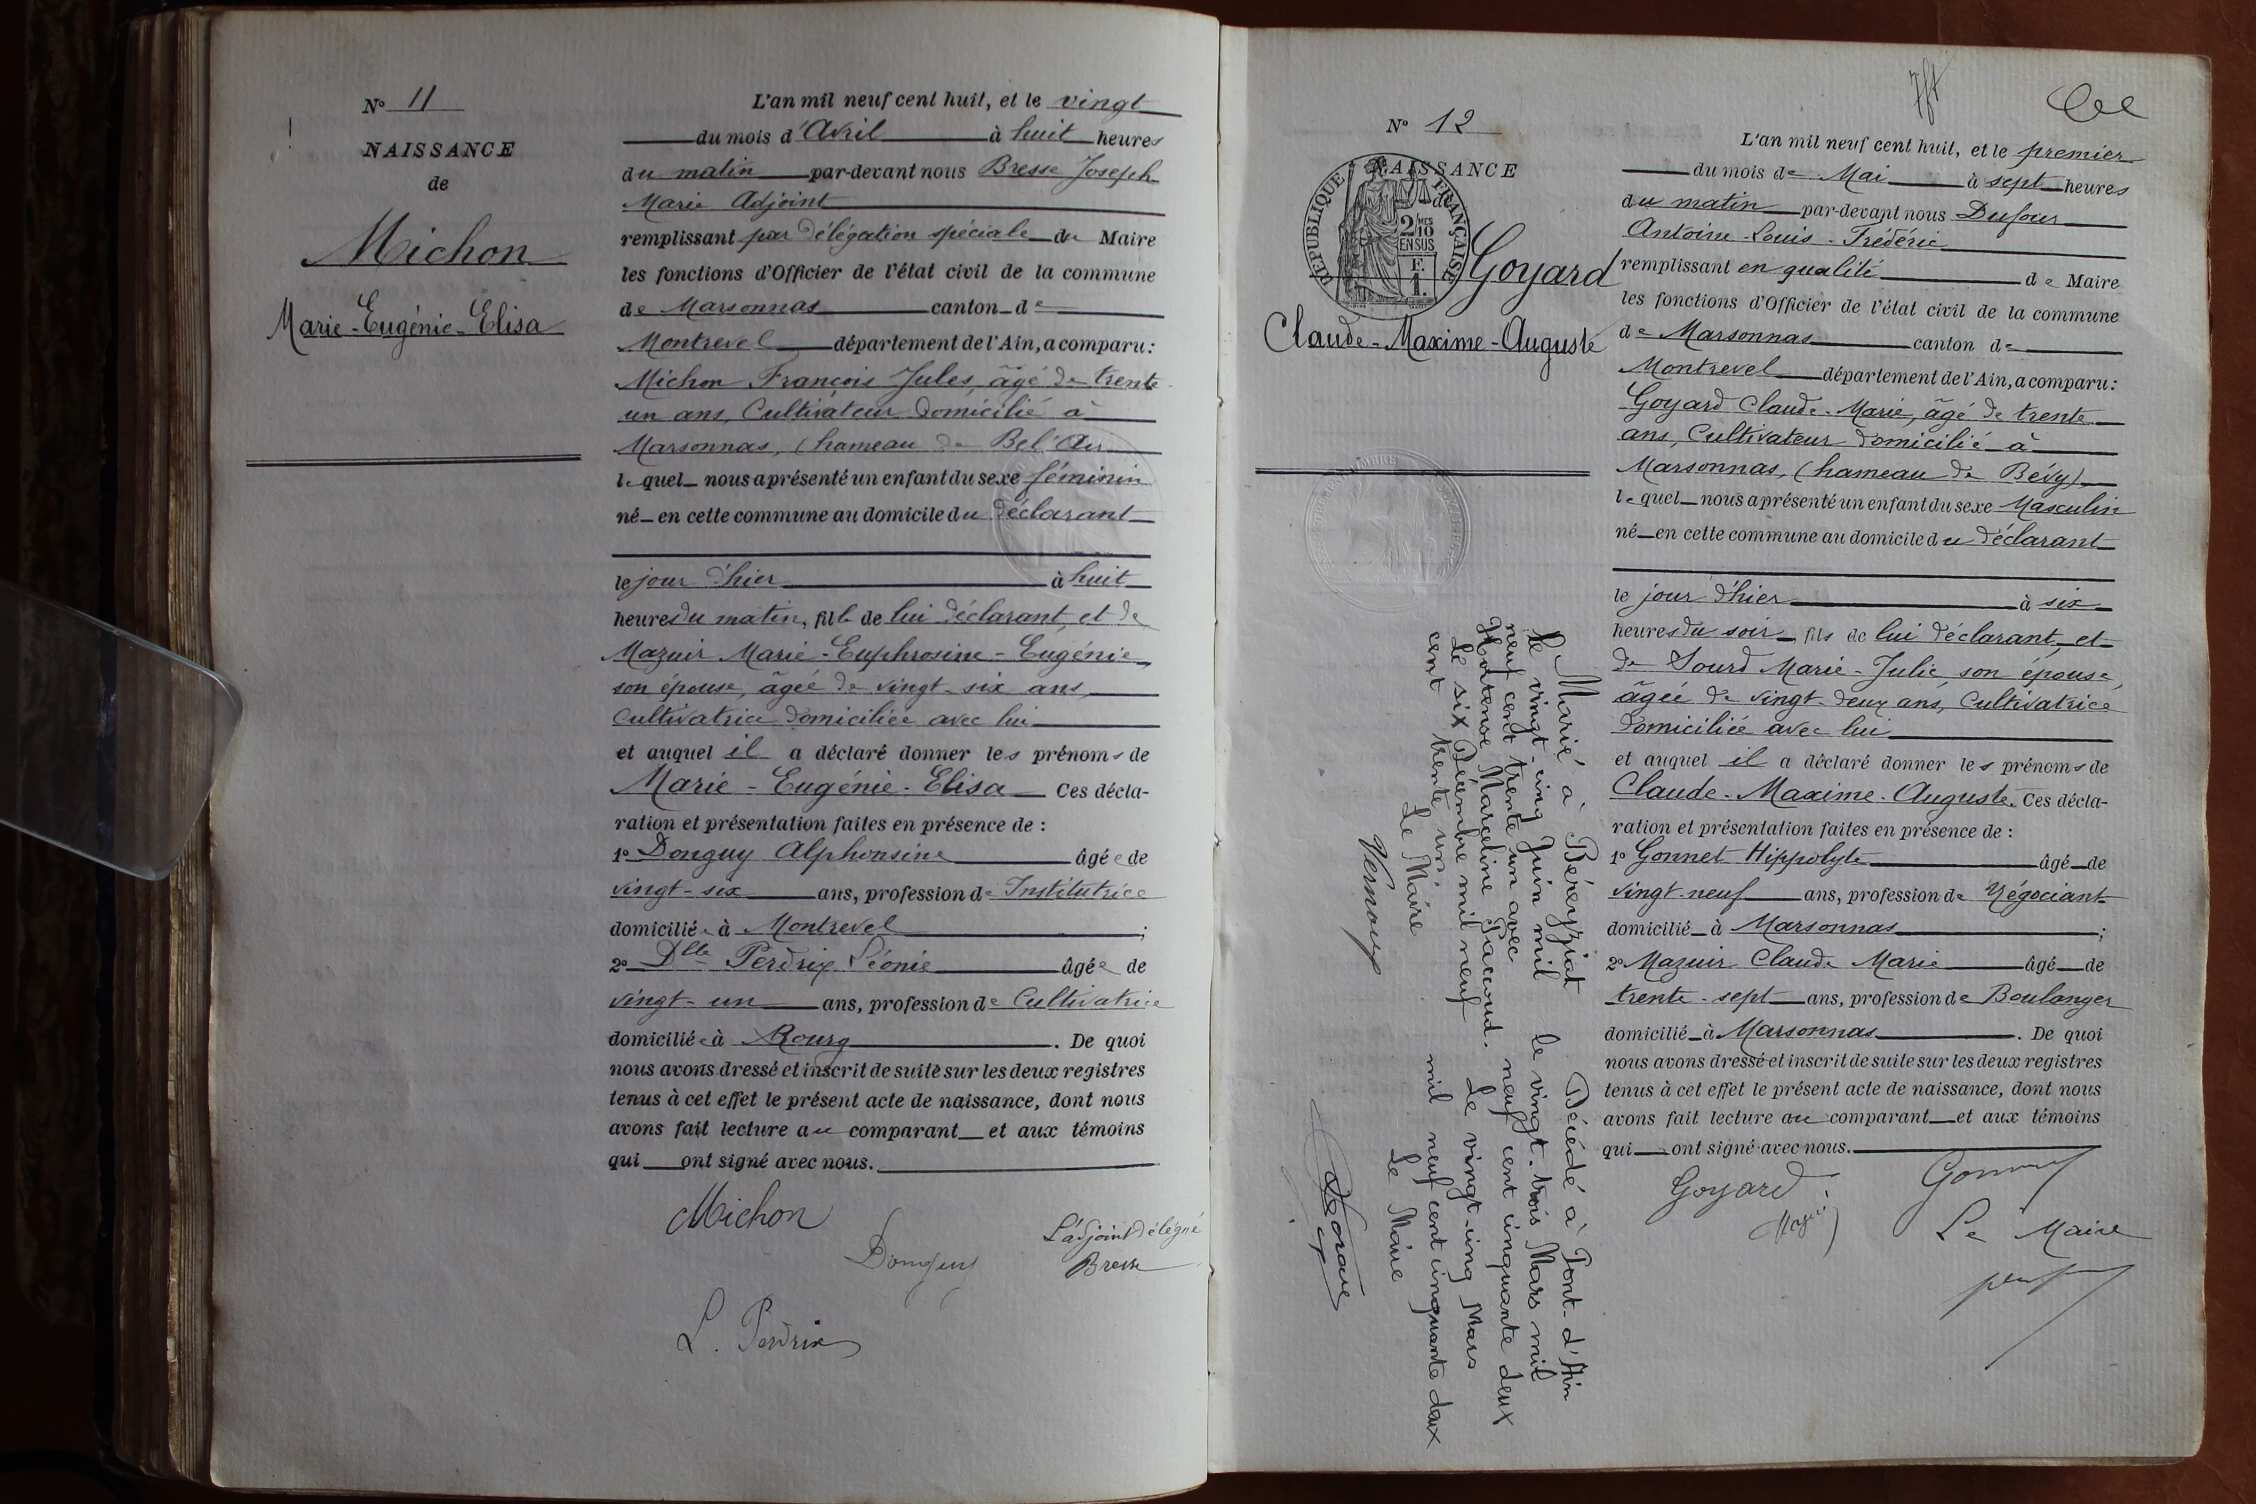 N° 11
NAISSANCE
de
Michon
Marie-Eugénie-Elisa
L'an mil neuf cent huit, et le vingt
du mois d'Avril à huit heures
du matin par-devant nous Bresse Joseph
Marie Adjoint
remplissant par délégation spéciale du Maire
les fonctions d'Officier de l'état civil de la commune
de Marsonnas canton de
Montrevel département de l'Ain, a comparu:
Michon François Jules, âgé de trente
un ans, Cultivateur domicilié à
Marsonnas, (hameau de Bel Air
lequel nous a présenté un enfant du sexe féminin
né en cette commune au domicile du déclarant
le jour d'hier à huit
heures du matin, fille de lui déclarant, et de
Mazuir Marie-Euphrosine-Eugénie,
son épouse, âgée de vingt-six ans,
Cultivatrice domiciliée avec lui
et auquel il a déclaré donner les prénoms de
Marie-Eugénie-Elisa Ces décla-
ration et présentation faites en présence de :
1° Donguy Alphonsine âgée de
vingt-six ans, profession de Institutrice
domiciliée à Montrevel ;
2° Dlle Perdrix Léonie âgée de
vingt-un ans, profession de Cultivatrice
domiciliée à Bourg . De quoi
nous avons dressé et inscrit de suite sur les deux registres
tenus à cet effet le présent acte de naissance, dont nous
avons fait lecture au comparant et aux témoins
qui ont signé avec nous.
Michon
Donguy
L'adjoint délégué
Bresse
L. Perdrix
N° 12
NAISSANCE
de
RÉPUBLIQUE FRANÇAISE
2/10 MES
EN SUS
F.
1.
Goyard
Claude-Maxime-Auguste
Marié à Béréyziat
le vingt-cinq Juin mil
neuf cent trente un avec
Hortense Marceline Paccoud.
Le six Décembre mil neuf
cent trente un
Le Maire
Vernoux
Décédé à Pont-d'Ain
le vingt-trois Mars mil
neuf cent cinquante deux
Le vingt-cinq Mars
mil neuf cent cinquante deux
Le Maire
L'an mil neuf cent huit, et le premier
du mois de Mai à sept heures
du matin par-devant nous Dufour
Antoine-Louis-Frédéric
remplissant en qualité de Maire
les fonctions d'Officier de l'état civil de la commune
de Marsonnas canton de
Montrevel département de l'Ain, a comparu:
Goyard Claude-Marie, âgé de trente
ans, Cultivateur domicilié à
Marsonnas, (hameau de Bévy)
lequel nous a présenté un enfant du sexe Masculin
né en cette commune au domicile du déclarant
le jour d'hier à six
heures du soir fils de lui déclarant, et
de Sourd Marie-Julie son épouse,
âgée de vingt-deux ans, Cultivatrice
domiciliée avec lui
et auquel il a déclaré donner les prénoms de
Claude-Maxime-Auguste. Ces décla-
ration et présentation faites en présence de :
1° Gonnet Hippolyte âgé de
vingt-neuf ans, profession de Négociant
domicilié à Marsonnas ;
2° Mazuir Claude Marie âgé de
trente-sept ans, profession de Boulanger
domicilié à Marsonnas . De quoi
nous avons dressé et inscrit de suite sur les deux registres
tenus à cet effet le présent acte de naissance, dont nous
avons fait lecture au comparant et aux témoins
qui ont signé avec nous.
Goyard
Gonnet
Mazuir
Le Maire